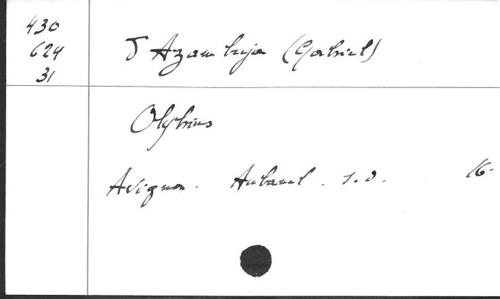 430
624
31
d'Azambuja (Gabriel)
Olybrius
Avignon. Aubanel. s.d. 16-